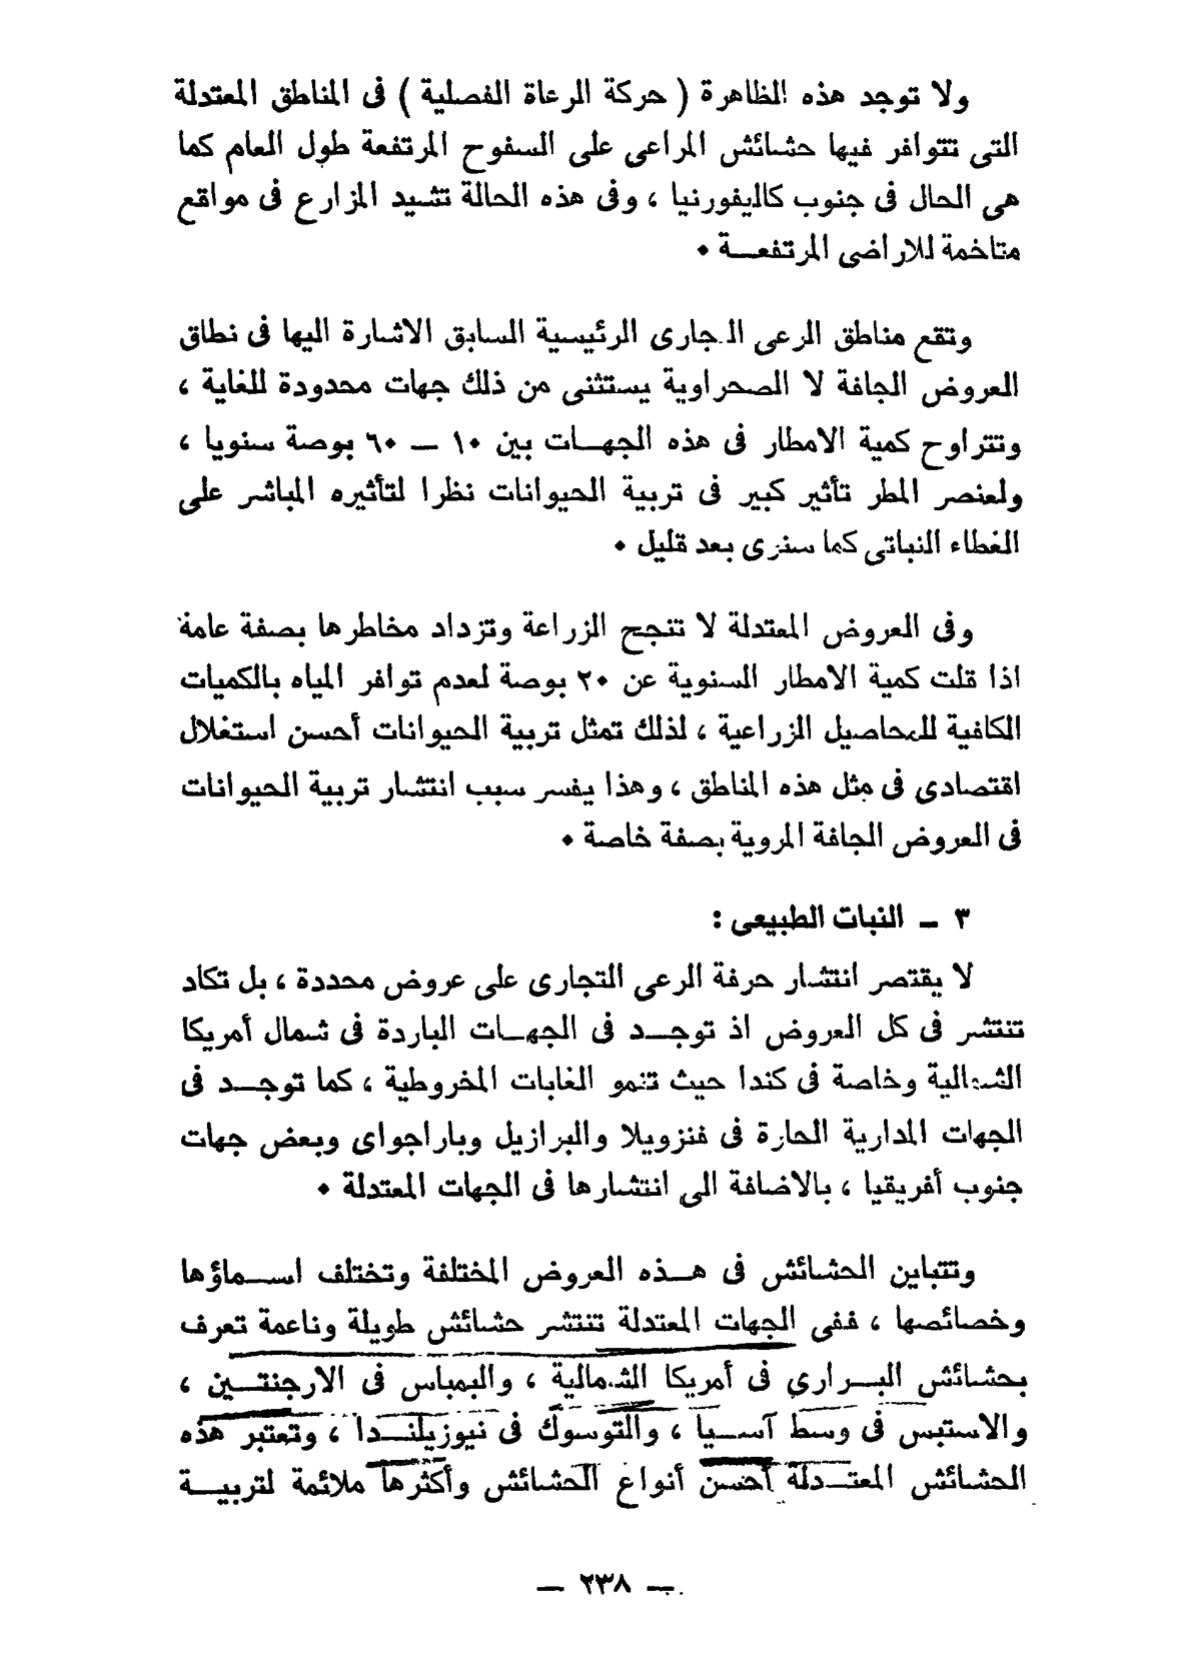 ولا توجد هذه الظاهرة ( حركة الرعاة الفصلية ) فى المناطق المعتدلة
التى تتوافر فيها حشائش المراعى على السفوح المرتفعة طول العام كما
هى الحال فى جنوب كاليفورنيا ، وفى هذه الحالة تشيد المزارع فى مواقع
متاخمة للاراضى المرتفعــة •
وتقع مناطق الرعى التجارى الرئيسية السابق الاشارة اليها فى نطاق
العروض الجافة لا الصحراوية يستثنى من ذلك جهات محدودة للغاية ،
وتتراوح كمية الامطار فى هذه الجهــات بين ١٠ ــ ٦٠ بوصة سنويا ،
ولعنصر المطر تأثير كبير فى تربية الحيوانات نظرا لتأثيره المباشر على
الغطاء النباتى كما سنرى بعد قليل •
وفى العروض المعتدلة لا تنجح الزراعة وتزداد مخاطرها بصفة عامة
اذا قلت كمية الامطار السنوية عن ٢٠ بوصة لعدم توافر المياه بالكميات
الكافية للمحاصيل الزراعية ، لذلك تمثل تربية الحيوانات أحسن استغلال
اقتصادى فى مثل هذه المناطق ، وهذا يفسر سبب انتشار تربية الحيوانات
فى العروض الجافة المروية بصفة خاصة •
٣ ــ النبات الطبيعى :
لا يقتصر انتشار حرفة الرعى التجارى على عروض محددة ، بل تكاد
تنتشر فى كل العروض اذ توجــد فى الجهــات الباردة فى شمال أمريكا
الشمالية وخاصة فى كندا حيث تنمو الغابات المخروطية ، كما توجــد فى
الجهات المدارية الحارة فى فنزويلا والبرازيل وباراجواى وبعض جهات
جنوب أفريقيا ، بالاضافة الى انتشارها فى الجهات المعتدلة •
وتتباين الحشائش فى هــذه العروض المختلفة وتختلف اســماؤها
وخصائصها ، ففى الجهات المعتدلة تنتشر حشائش طويلة وناعمة تعرف
بحشائش البــرارى فى أمريكا الشمالية ، والبمباس فى الارجنتــين ،
والاستبس فى وسط آســيا ، والتوسوك فى نيوزيلنــدا ، وتعتبر هذه
الحشائش المعتــدلة أحسن أنواع الحشائش وأكثرها ملائمة لتربيــة
ــ ٢٣٨ ــ